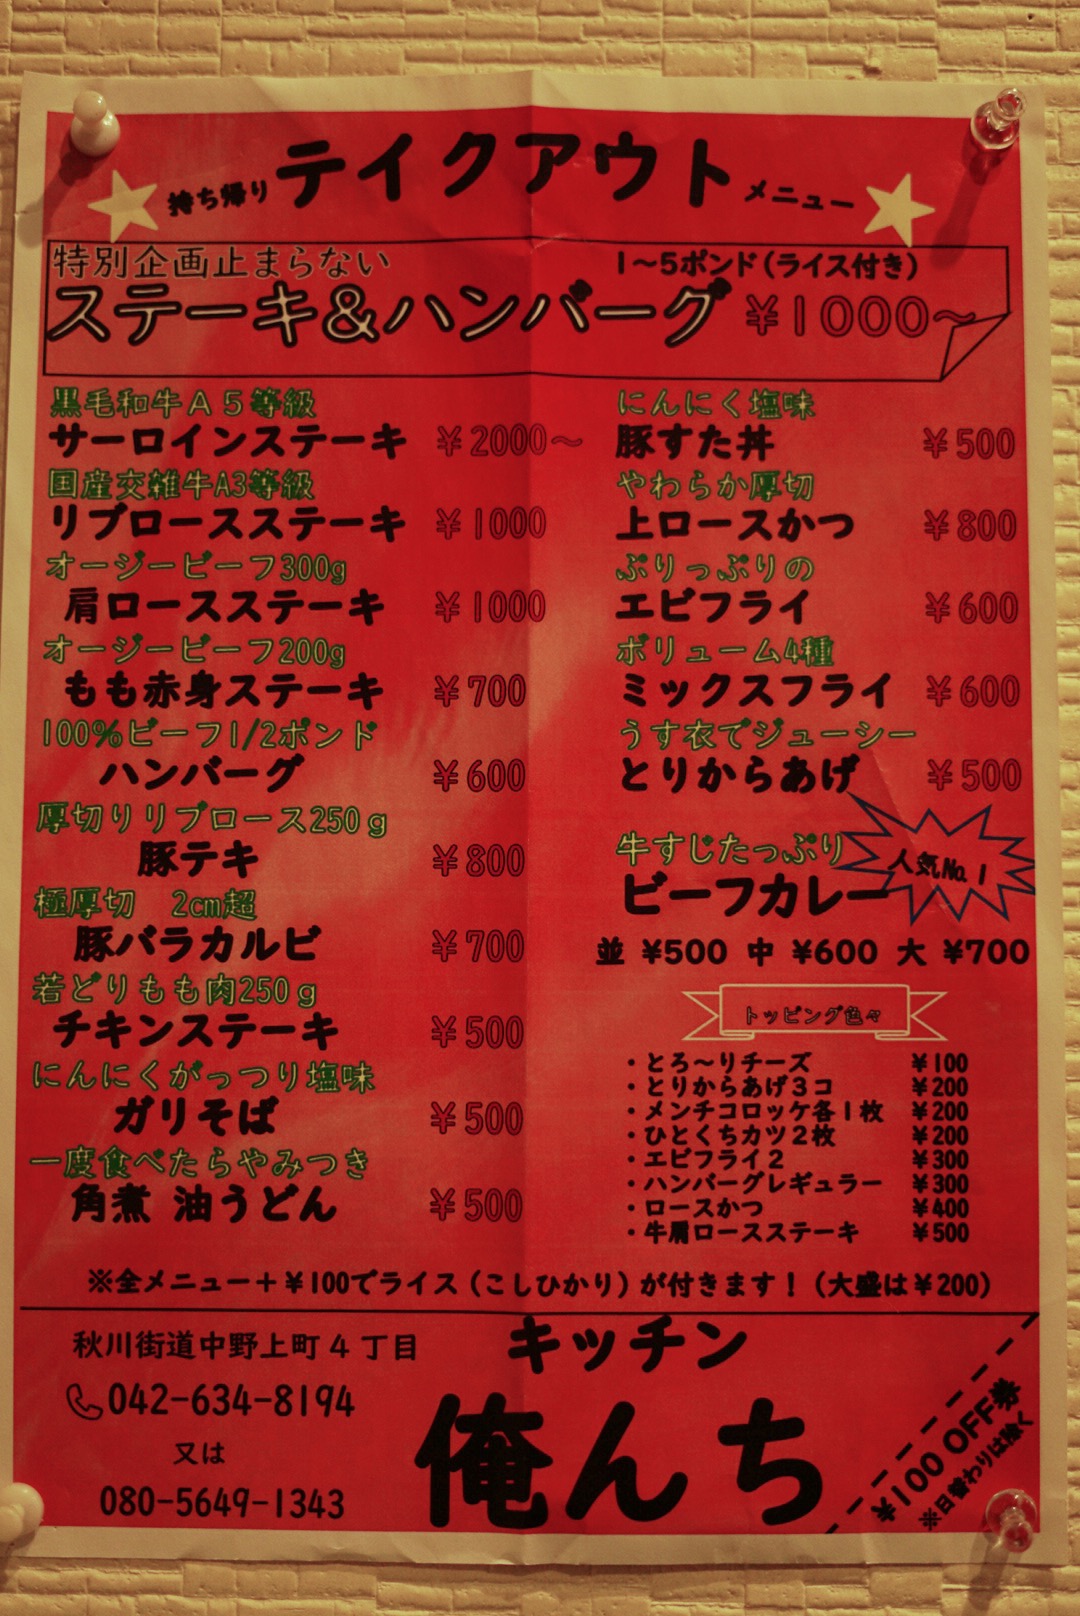 持ち帰り テイクアウト メニュー
特別企画止まらない 1～5ポンド（ライス付き）
ステーキ&ハンバーグ ￥1000～
黒毛和牛Ａ５等級
サーロインステーキ ￥2000～
国産交雑牛A3等級
リブロースステーキ ￥1000
オージービーフ300g
肩ロースステーキ ￥1000
オージービーフ200g
もも赤身ステーキ ￥700
100％ビーフ1/2ポンド
ハンバーグ ￥600
厚切りリブロース250ｇ
豚テキ ￥800
極厚切　2cm超
豚バラカルビ ￥700
若どりもも肉250ｇ
チキンステーキ ￥500
にんにくがっつり塩味
ガリそば ￥500
一度食べたらやみつき
角煮 油うどん ￥500
にんにく塩味
豚すた丼 ￥500
やわらか厚切
上ロースかつ ￥800
ぷりっぷりの
エビフライ ￥600
ボリューム4種
ミックスフライ ￥600
うす衣でジューシー
とりからあげ ￥500
牛すじたっぷり
ビーフカレー 人気No.1
並 ¥500 中 ¥600 大 ¥700
トッピング色々
・とろ～りチーズ ￥100
・とりからあげ３コ ￥200
・メンチコロッケ各１枚 ￥200
・ひとくちカツ２枚 ￥200
・エビフライ２ ￥300
・ハンバーグレギュラー ￥300
・ロースかつ ￥400
・牛肩ロースステーキ ￥500
※全メニュー＋￥100でライス（こしひかり）が付きます！（大盛は￥200）
秋川街道中野上町４丁目
042-634-8194
又は
080-5649-1343
キッチン
俺んち
￥100 OFF券
※日替わりは除く